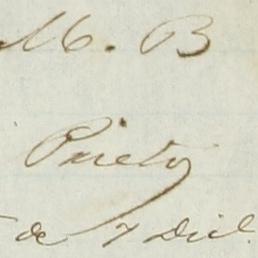 M. B
Prieto
de 7 Dicl.